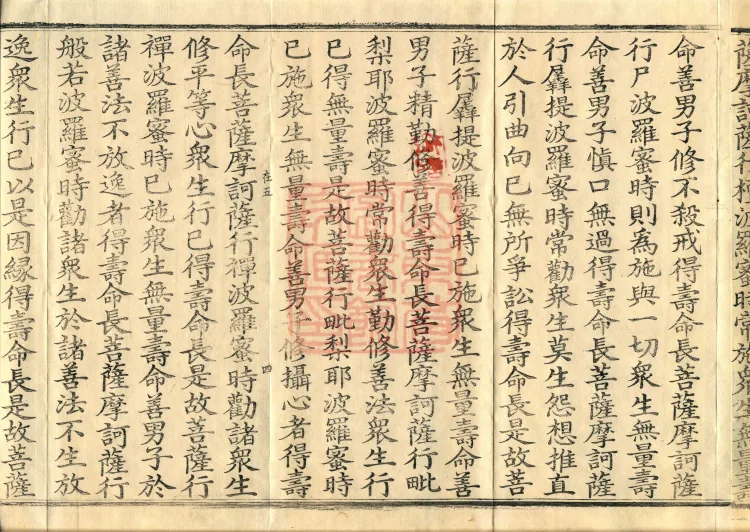 薩摩訶薩行檀波羅蜜時常施衆生無量壽
命善男子修不殺戒得壽命長菩薩摩訶薩
行尸波羅蜜時則爲施與一切衆生無量壽
命善男子慎口無過得壽命長菩薩摩訶薩
行羼提波羅蜜時常勸衆生莫生怨想推直
於人引曲向已無所爭訟得壽命長是故菩
薩行羼提波羅蜜時已施衆生無量壽命善
男子精勤修善得壽命長菩薩摩訶薩行毗
梨耶波羅蜜時常勸衆生勤修善法衆生行
已得無量壽是故菩薩行毗梨耶波羅蜜時
已施衆生無量壽命善男子修攝心者得壽
在五 四
命長菩薩摩訶薩行禪波羅蜜時勸諸衆生
修平等心衆生行已得壽命長是故菩薩行
禪波羅蜜時已施衆生無量壽命善男子於
諸善法不放逸者得壽命長菩薩摩訶薩行
般若波羅蜜時勸諸衆生於諸善法不生放
逸衆生行已以是因緣得壽命長是故菩薩